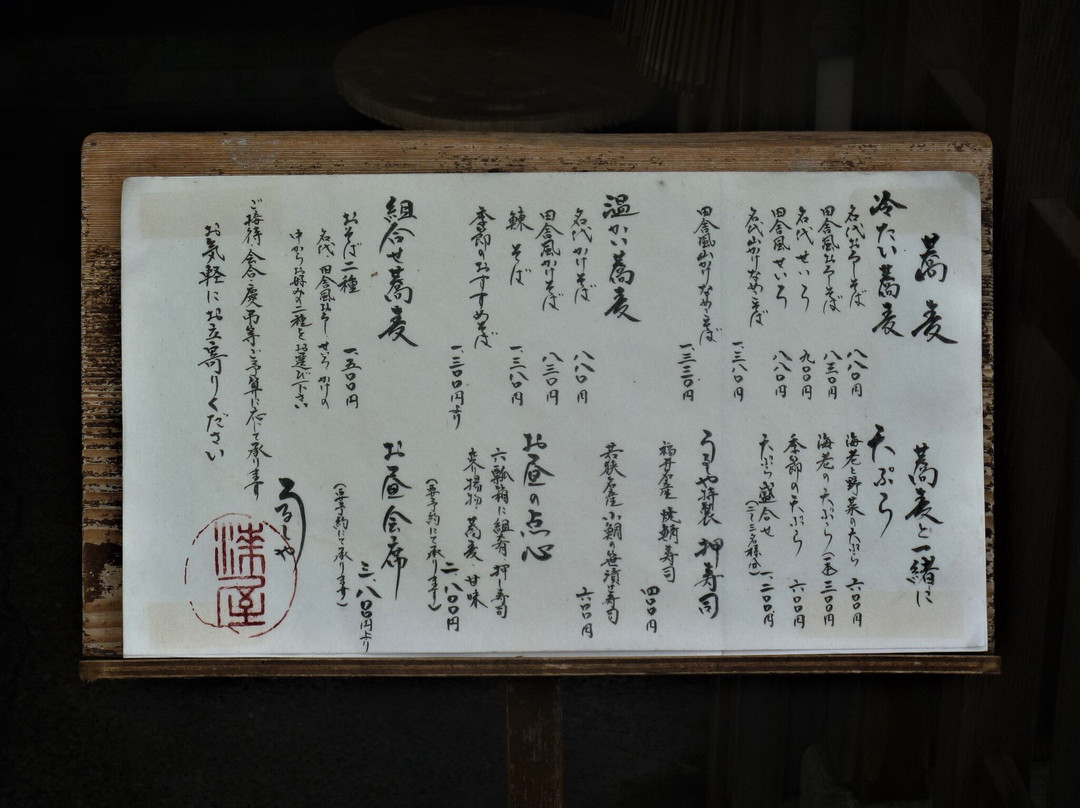 蕎麦
冷たい蕎麦
名代おろしそば 八八〇円
田舎風おろしそば 八三〇円
名代せいろ 九〇〇円
田舎風せいろ 八八〇円
名代山かけなめこそば 一、三八〇円
田舎風山かけなめこそば 一、三三〇円
温かい蕎麦
名代かけそば 八八〇円
田舎風かけそば 八三〇円
鰊そば 一、三八〇円
季節のおすすめそば 一、三〇〇円より
組合せ蕎麦
おそば二種 一、五〇〇円
名代 田舎風おろし せいろ かけの
中からお好みの二種をお選び下さい
蕎麦と一緒に
天ぷら
海老と野菜の天ぷら 六〇〇円
海老の天ぷら 三〇〇円
季節の天ぷら 六〇〇円
天ぷら盛合せ 一、二〇〇円
(二〜三名様分)
うるしや特製 押寿司
福井名産 焼鯖寿司 四〇〇円
若狭名産 小鯛の笹漬け寿司 六〇〇円
お昼の点心
六瓢箱に組肴・押寿司
揚物・蕎麦・甘味 二、八〇〇円
(要予約にて承ります)
お昼会席 三、八〇〇円より
(要予約にて承ります)
ご接待・会合・慶弔等ご予算に応じて承ります
お気軽にお立寄りください
うるしや
漆屋